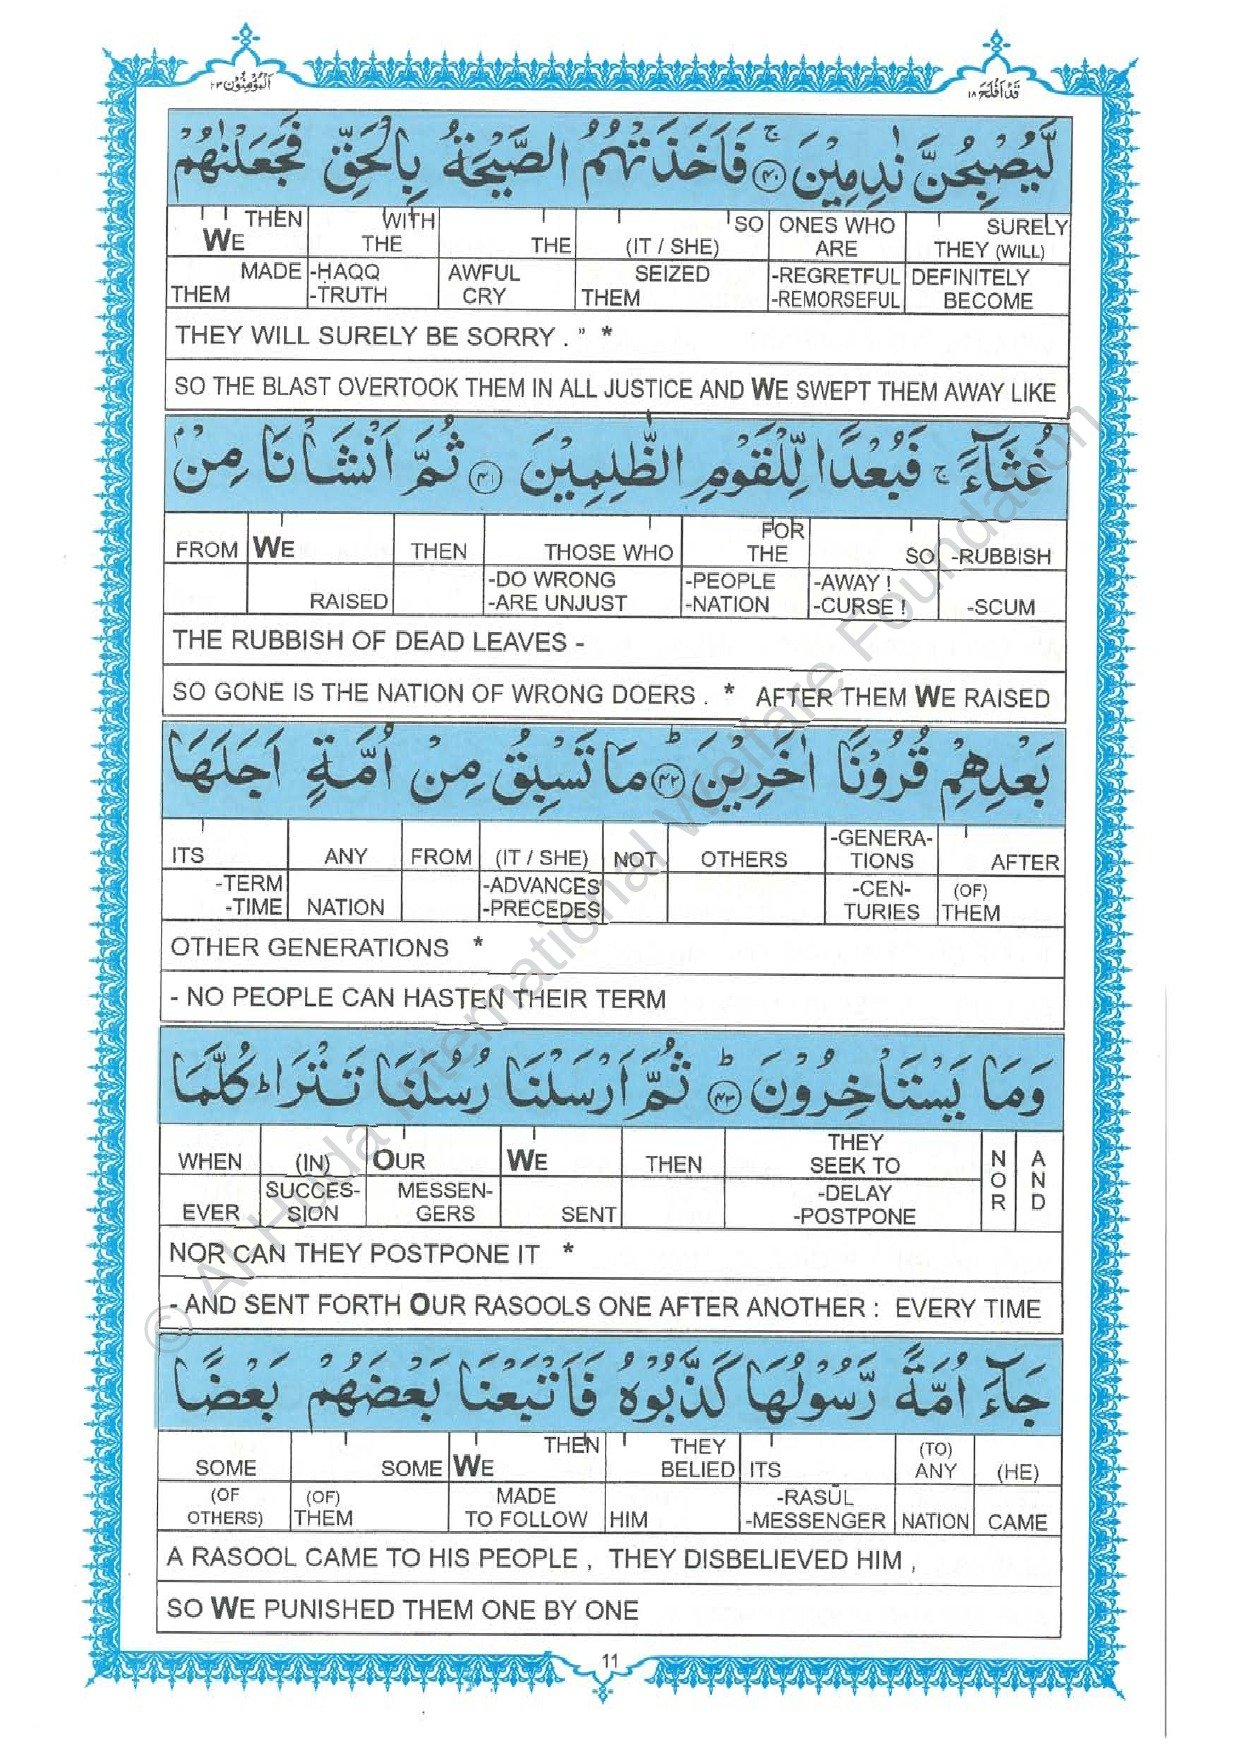 قَدْ اَفْلَحَ ١٨
اَلْمُؤْمِنُوْن ٢٣
لَّيُصْبِحُنَّ نٰدِمِيْنَ ۚ ﴿٤٠﴾ فَاَخَذَتْهُمُ الصَّيْحَةُ بِالْحَقِّ فَجَعَلْنٰهُمْ
THEN WITH SO ONES WHO SURELY
WE THE THE (IT / SHE) ARE THEY (WILL)
MADE -ḤAQQ AWFUL SEIZED -REGRETFUL DEFINITELY
THEM -TRUTH CRY THEM -REMORSEFUL BECOME
THEY WILL SURELY BE SORRY . " *
SO THE BLAST OVERTOOK THEM IN ALL JUSTICE AND WE SWEPT THEM AWAY LIKE
غُثَآءً ۚ فَبُعْدًا لِّلْقَوْمِ الظّٰلِمِيْنَ ﴿٤١﴾ ثُمَّ اَنْشَاْنَا مِنْۢ
FOR
FROM WE THEN THOSE WHO THE SO -RUBBISH
-DO WRONG -PEOPLE -AWAY !
RAISED -ARE UNJUST -NATION -CURSE ! -SCUM
THE RUBBISH OF DEAD LEAVES -
SO GONE IS THE NATION OF WRONG DOERS . * AFTER THEM WE RAISED
بَعْدِهِمْ قُرُوْنًا اٰخَرِيْنَ ؕ ﴿٤٢﴾ مَا تَسْبِقُ مِنْ اُمَّةٍ اَجَلَهَا
-GENERA-
ITS ANY FROM (IT / SHE) NOT OTHERS TIONS AFTER
-TERM -ADVANCES -CEN- (OF)
-TIME NATION -PRECEDES TURIES THEM
OTHER GENERATIONS *
- NO PEOPLE CAN HASTEN THEIR TERM
وَمَا يَسْتَاْخِرُوْنَ ؕ ﴿٤٣﴾ ثُمَّ اَرْسَلْنَا رُسُلَنَا تَتْرَا ؕ كُلَّمَا
THEY
WHEN (IN) OUR WE THEN SEEK TO NOR AND
SUCCES- MESSEN- -DELAY
EVER SION GERS SENT -POSTPONE
NOR CAN THEY POSTPONE IT *
- AND SENT FORTH OUR RASOOLS ONE AFTER ANOTHER : EVERY TIME
جَآءَ اُمَّةً رَّسُوْلُهَا كَذَّبُوْهُ فَاَتْبَعْنَا بَعْضَهُمْ بَعْضًا
THEN THEY (TO)
SOME SOME WE BELIED ITS ANY (HE)
(OF (OF) MADE -RASŪL
OTHERS) THEM TO FOLLOW HIM -MESSENGER NATION CAME
A RASOOL CAME TO HIS PEOPLE , THEY DISBELIEVED HIM ,
SO WE PUNISHED THEM ONE BY ONE
11
© Al-Huda International Welfare Foundation